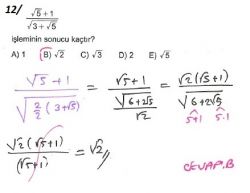 12/ √5 + 1 / √(3 + √5)
işleminin sonucu kaçtır?
A) 1 B) √2 C) √3 D) 2 E) √5
(√5 + 1) / √(2/2 (3+√5)) = (√5 + 1) / (√(6+2√5) / √2) = √2(√5+1) / √(6+2√5)
5+1 5.1
√2(√5+1) / (√5+1) = √2 //
CEVAP.B